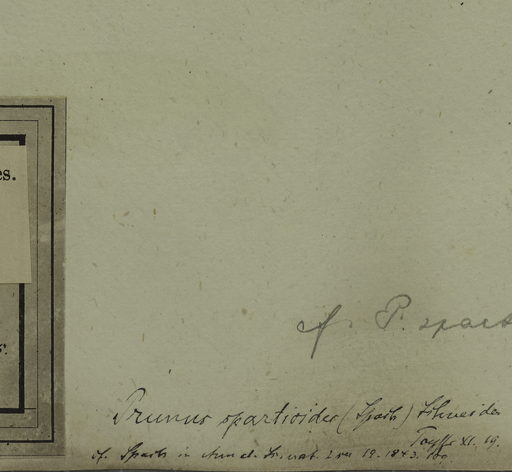 es.
cf. P. spart
s.
Prunus spartioides (Spach) Schneider
XI. 19.
cf. Spach in Annal. Sc. nat. 2 ser 19. 1843.